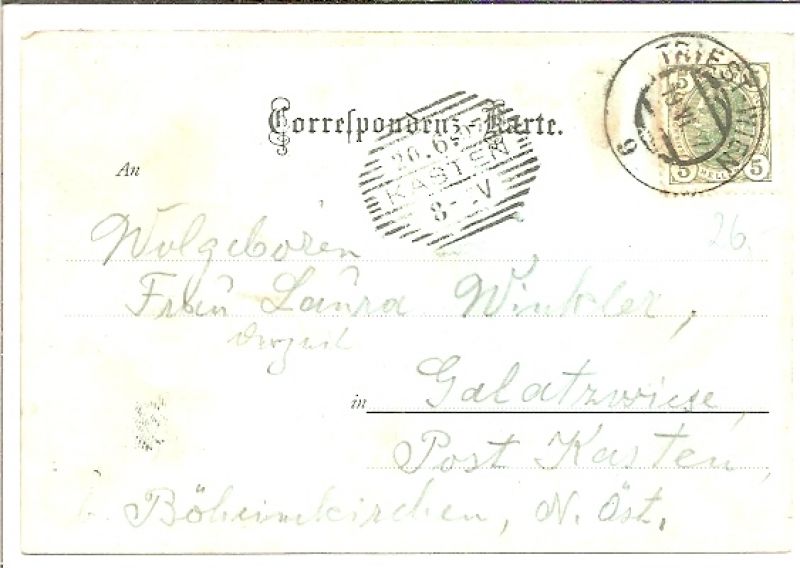 Correspondenz-Karte.
TRIEST-WIEN
6
5
5 HELLER 5
26.6.
KASTEN
8- V
An
26.-
Wolgeboren
Frau Laura Winkler,
derzeit
in Galatzwiese,
Post Kasten,
b. Böheimkirchen, N. Öst.